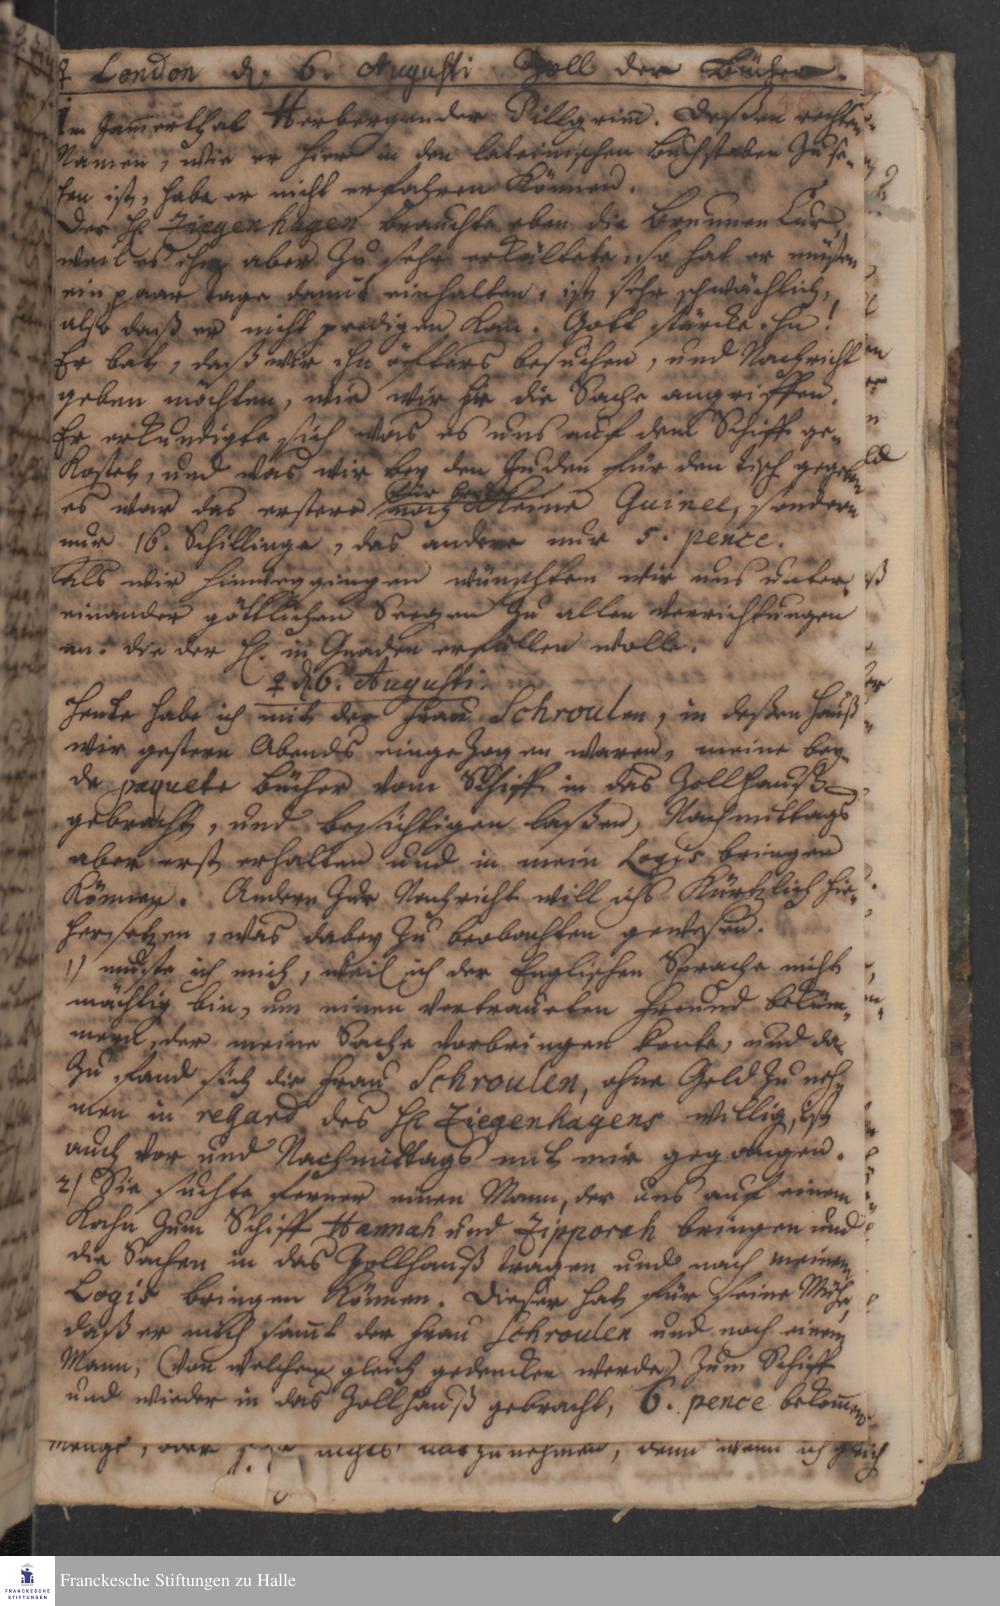 ♀ London d. 6. Augusti Zoll der Bücher.
Im Jam̄erthal Herbergender Pillgrim. Deßen rechten
Namen, wie er hier in den lateinischen Buchstaben zu se-
hen ist, habe er nicht erfahren können.
Der H. Ziegenhagen brauchte eben die Brunnen Cur,
weil es ihn aber zu sehr erkältete, so hat er müßen
ein paar Tage damit einhalten, ist sehr schwächlich,
also daß er nicht predigen kan. Gott stärcke ihn!
Er bat, daß wir ihn öfters besuchen, und Nachricht
geben möchten, wie wir hie die Sache angriffen.
Er erkundigte sich was es uns auf dem Schiff ge-
kostet, und was wir bey den Juden für den Tisch gegeben
für beyde
es war das erstere noch keine Guinee, sondern
nur 16. Schillinge, das andere nur 5. pence.
Als wir hinweggingen wünschten wir uns unter
einander göttlichen Seegen zu allen Verrichtungen
an: die der H. in Gnaden erfüllen wolle.
♀ d. 6. Augusti.
Heute habe ich mit der Frau Schroulen, in deßen Hauß
wir gestern Abends eingezogen waren, meine bey-
de paquete Bücher vom Schiff in das Zollhauß
gebracht, und besichtigen laßen, Nachmittags
aber erst erhalten und in mein Logis bringen
können. Andern zur Nachricht will ichs kürtzlich hie-
hersetzen, was dabey zu beobachten gewesen.
1) muste ich mich, weil ich der Englischen Sprache nicht
mächtig bin, um einen vertraueten Freund beküm-
mern, der meine Sache vorbringen konte, und da-
zu fand sich die Frau Schroulen, ohne Geld zu neh-
men in regard des H. Ziegenhagens willig, ist
auch Vor und Nachmittags mit mir gegangen.
2) Sie suchte ferner einen Mann, der uns auf einem
Kahn zum Schiff Hannah und Zipporah bringen und
die Sachen in das Zollhauß tragen und nach meinem
Logis bringen können. Dieser hat für seine Mühe,
daß er mich sam̄t der Frau Schroulen und noch einem
Mann, (von welchem gleich gedencken werde) zum Schiff
und wieder in das Zollhauß gebracht, 6. pence bekom̄en
menge, oder nichts auszunehmen, denn wenn ich gleich
FRANCKESCHE STIFTUNGEN
Franckesche Stiftungen zu Halle